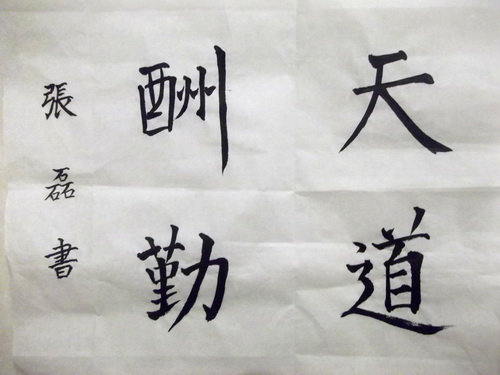 天道
酬勤
張磊書